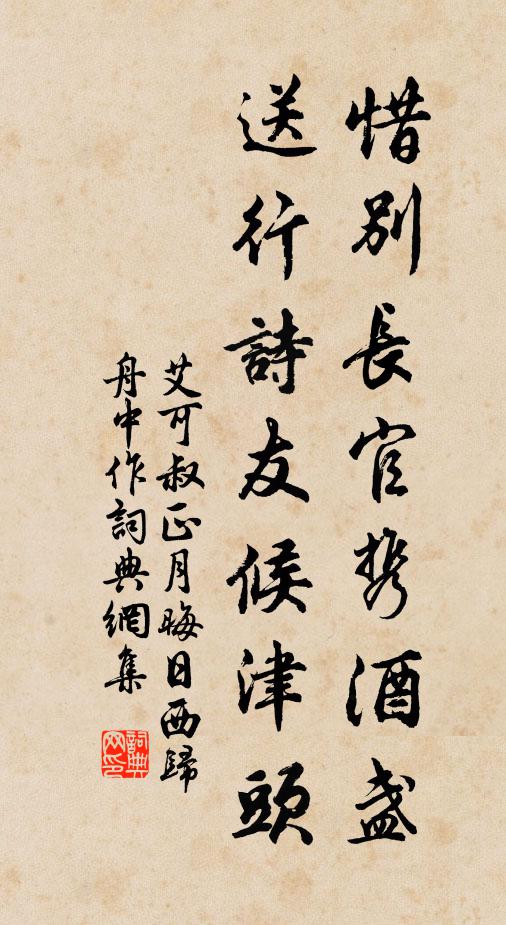 惜別長官携酒盞
送行詩友候津頭
艾可叔正月晦日西歸
舟中作詞典網集
詞典
网印